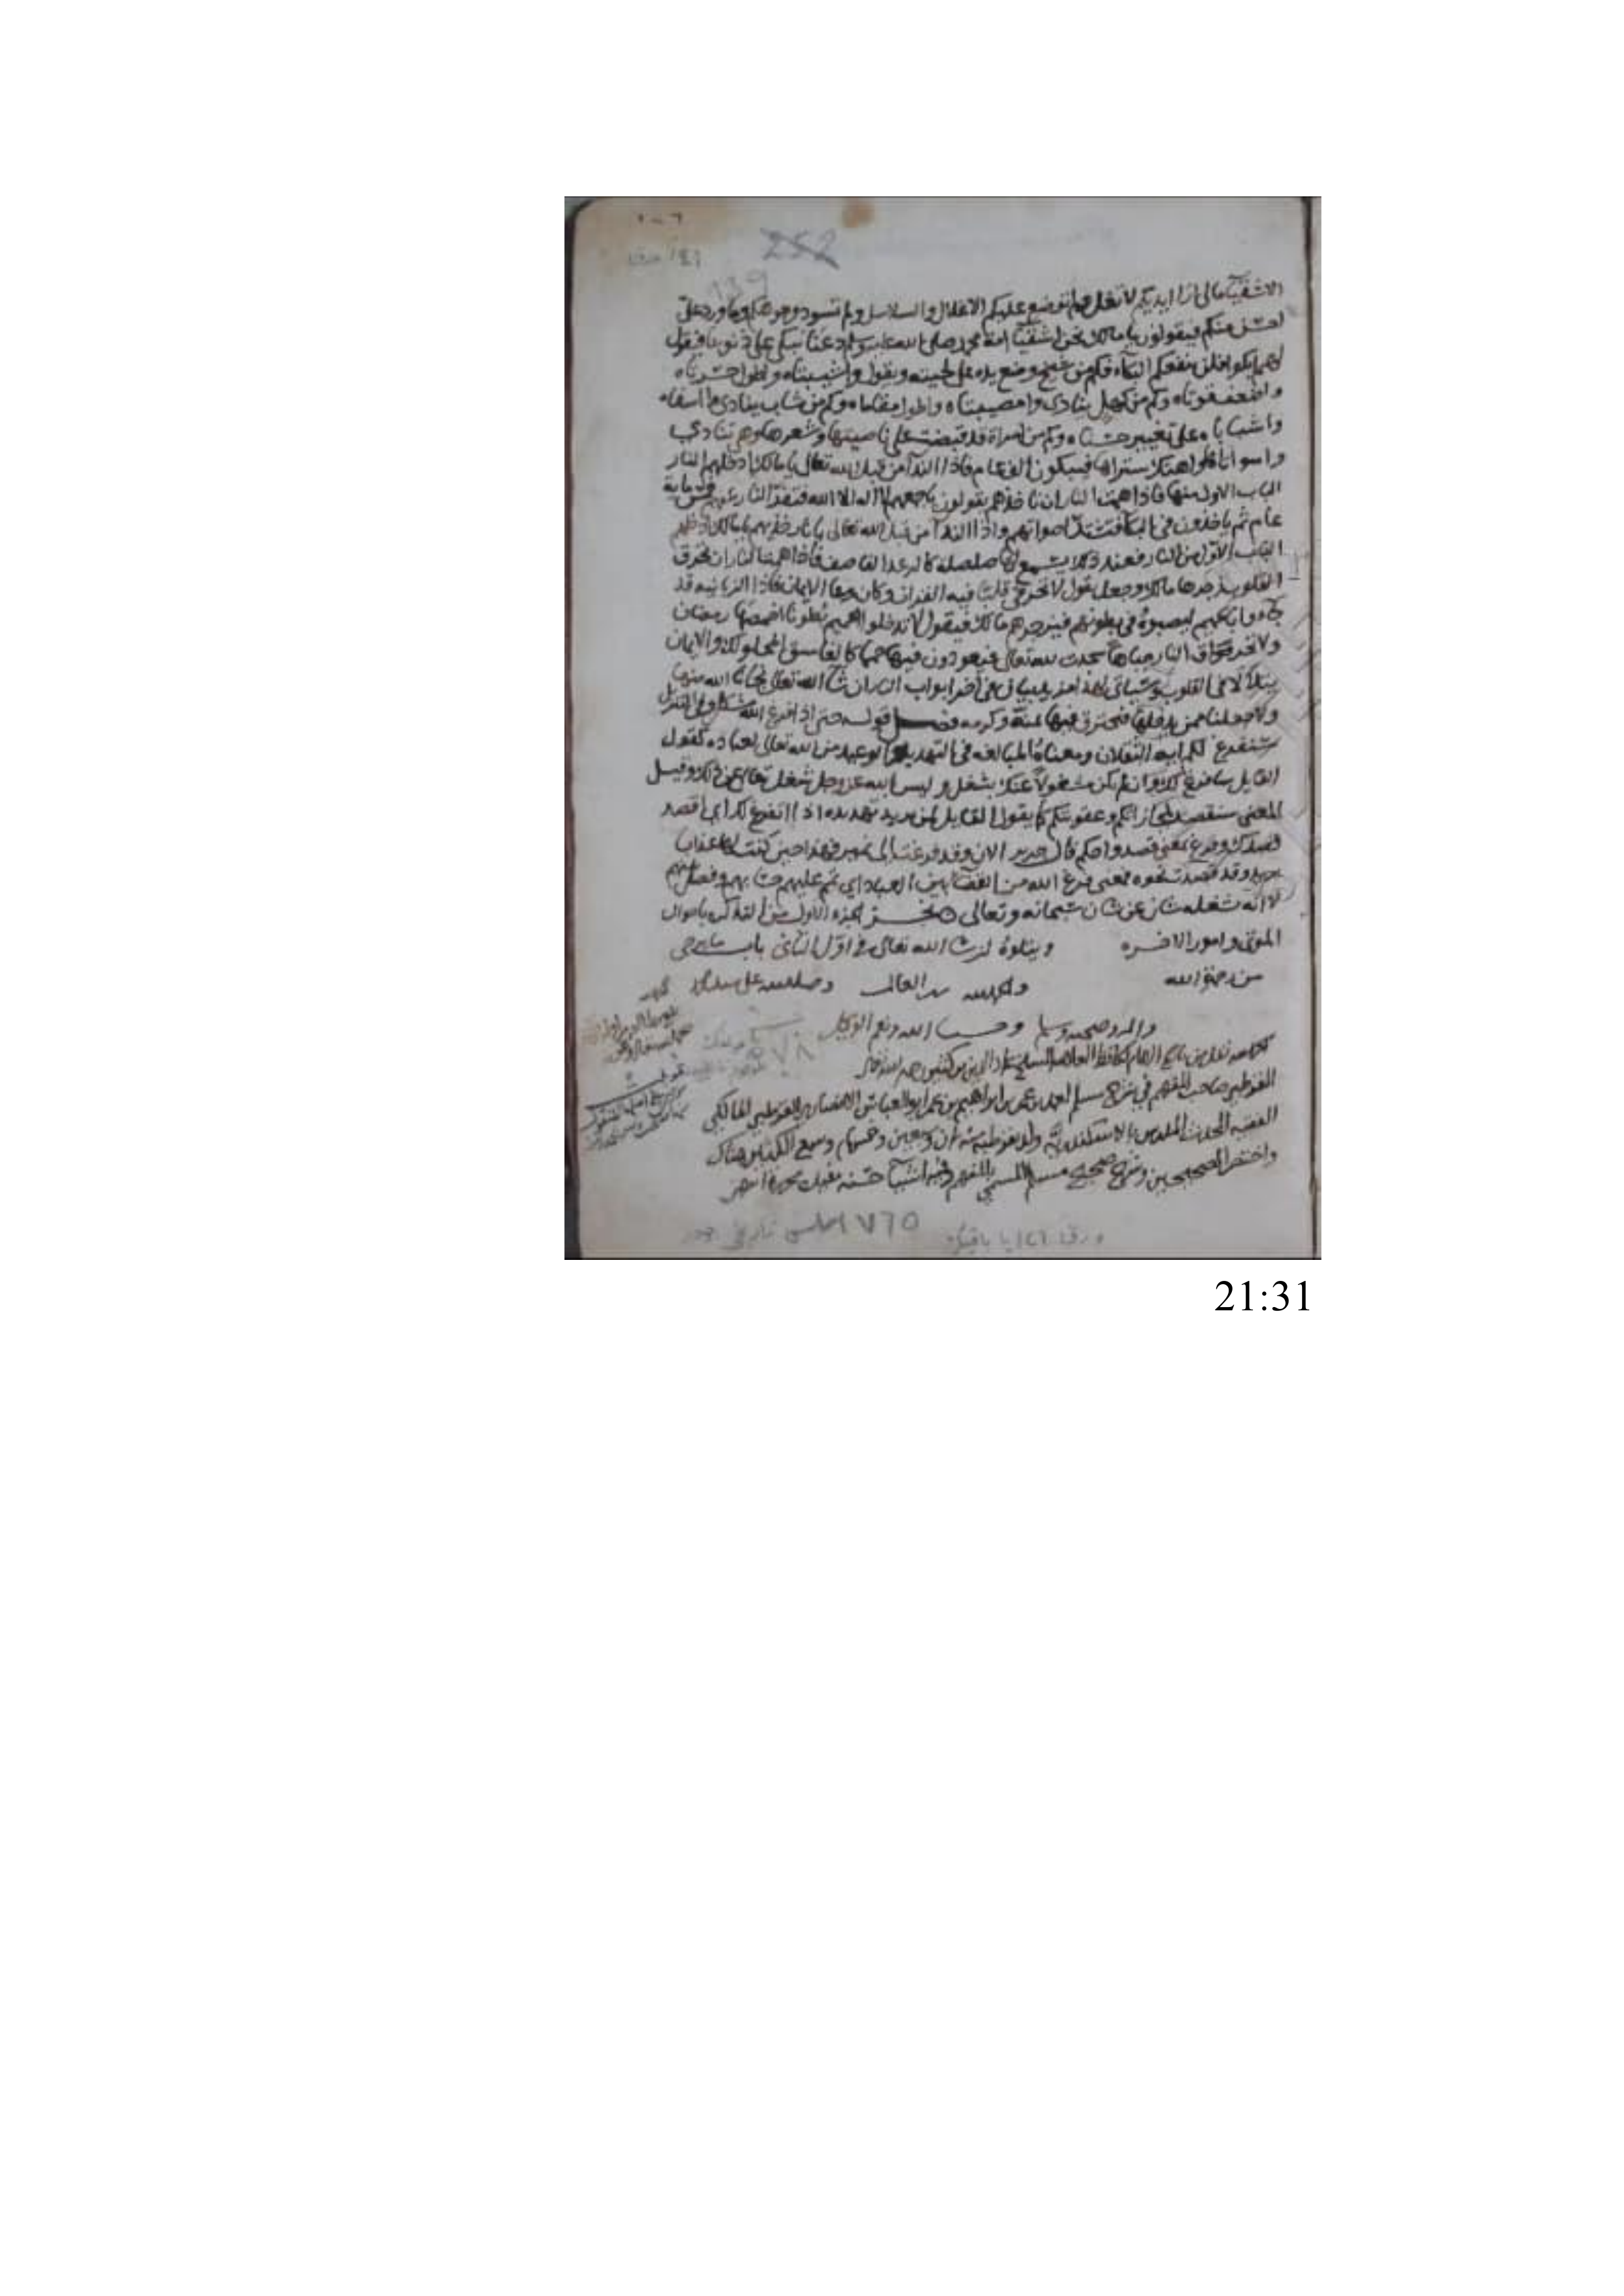 252
139
الاشقيآ مالي ارا ايديكم لا تغل ولم توضع عليكم الاغلال والسلاسل ولم تسود وجوهكم وما ورد علي
احسن منكم فيقولون يا مالك نحن اشقيآ امة محمد صلي الله عليه وسلم دعنا نبكي علي ذنوبنا فيقول
لهم ابكوا فلن ينفعكم البكآء فكم من شيخ وضع يده علي لحيته ويقول واشيبتاه واطول حسرتاه
واضعف قوتاه وكم من كهل ينادي وا مصيبتاه واطول مقاماه وكم من شاب ينادي وا اسفاه
واشباباه علي تغيير حسناه وكم من امراة قد قبضت علي ناصيتها وشعرها وهي تنادي
واسواتاه واهتك استراه فيبكون الف عام فاذا الندآ من قبل الله تعالي يا مالك ادخلهم النار
الباب الاول منها فاذا همت النار ان تاخذهم يقولون باجمعهم لا اله الا الله فتفر النار عنهم خمس ماية
عام ثم ياخذون في البكآ فتشتد اصواتهم واذا الندآ من قبل الله تعالي يا نار خذيهم يا مالك ادخلهم
الباب الاول من النار فعند ذلك يسمع لها صلصلة كالرعد القاصف فاذا همت النار ان تحرق
القلوب زجرها مالك وجعل يقول لا تحرقي قلبا فيه القران وكان وعا الايمان فاذا الزبانية قد
جاءوا بالحميم ليصبوه في بطونهم فيزجرهم مالك فيقول لا تدخلوا الحميم بطونا اخمصها رمضان
ولا تحرق النار جباها سجدت لله تعالي فيعودون فيها حمما كالغاسق المحلولك والايمان
يتلألأ في القلوب وسياتي لهذا مزيد بيان في اخر ابواب النار ان شآ الله تعالي نجانا الله منها
ولا جعلنا ممن يدخلها فيحترق فيها بمنه وكرمه فصل قوله حتي اذا فرغ الله مشكل وفي التنزيل
سنفرغ لكم ايه الثقلان ومعناه المبالغه في التهديد والوعيد من الله تعالي لعباده كقول
القايل سافرغ لك وان لم يكن مشغولا عنك بشغل وليس بالله عز وجل شغل تعالي عن ذلك وقيل
المعني سنقصد لمجازاتكم وعقوبتكم كما يقول القايل لمن يريد تهديده اذا اتفرغ لك اي اقصد
قصدك وفرغ بمعني قصد واحكم قال جرير الان وقد فرغت الي نمير فهذا حين كنت لها عذابا
يريد وقد قصدت نحوه فمعني فرغ الله من القضآ بين العباد اي تمم عليهم حسابهم وفصل بينهم
لا انه شغله شان عن شان سبحانه وتعالي نجز الجزء الاول من التذكرة باحوال
الموتي وامور الاخره ويتلوه ان شا الله تعالي في اول الثاني باب ما يرجي
من رحمة الله والحمد لله رب العالمين وصلي الله علي سيدنا محمد
واله وصحبه وسلم وحسبنا الله ونعم الوكيل
القرطبي صاحب المفهم في شرح مسلم احمد بن عمر بن ابراهيم بن عمر ابو العباس الانصاري القرطبي المالكي
الفقيه المحدث المدرس بالاسكندرية ولد بقرطبة سنة ثمان وسبعين وخمسماية وسمع الكثير هناك
واختصر الصحيحين وشرح صحيح مسلم المسمي بالمفهم وفيه اشيآ حسنه مفيدة محررة انتهي
21:31